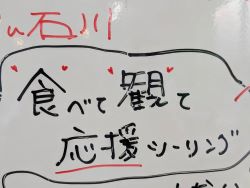 石川
食べて観て
応援ツーリング